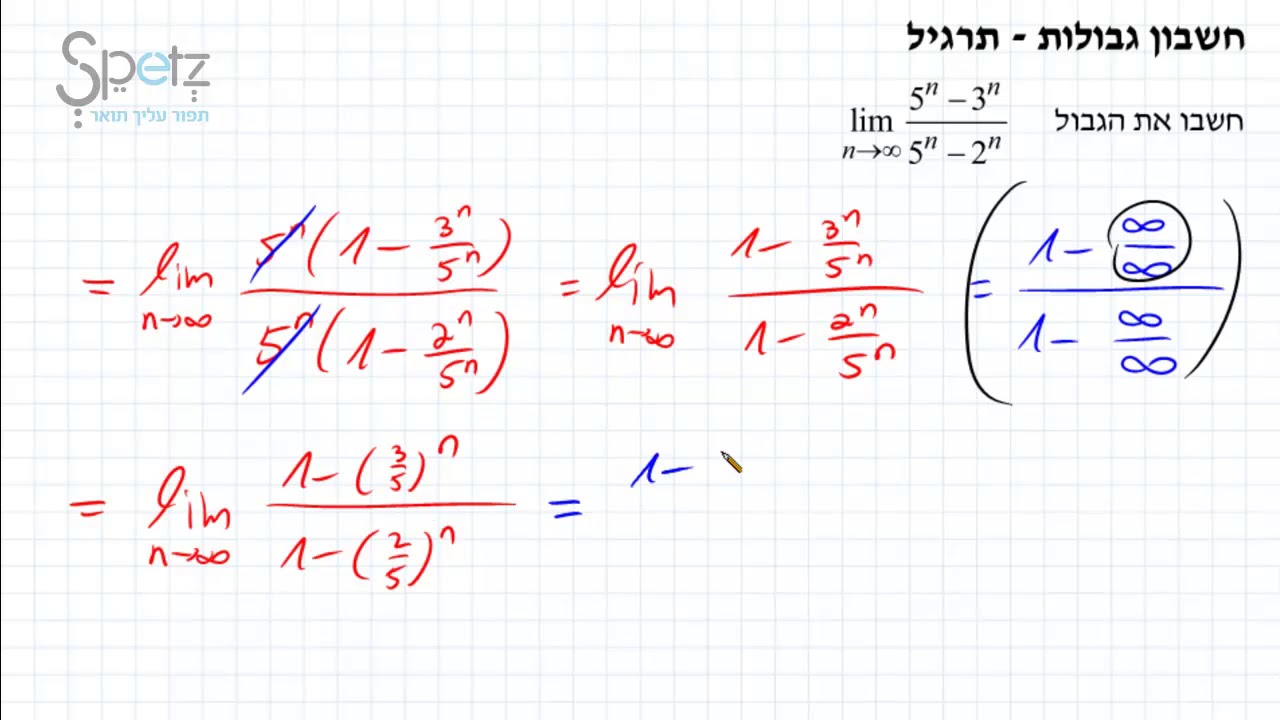 Spetz
תפור עליך תואר
חשבון גבולות - תרגיל
חשבו את הגבול lim n→∞ (5^n − 3^n)/(5^n − 2^n)
= lim n→∞ 5^n(1 − 3^n/5^n) / 5^n(1 − 2^n/5^n) = lim n→∞ (1 − 3^n/5^n)/(1 − 2^n/5^n) ( = (1 − ∞/∞)/(1 − ∞/∞) )
= lim n→∞ (1 − (3/5)^n)/(1 − (2/5)^n) = 1 −